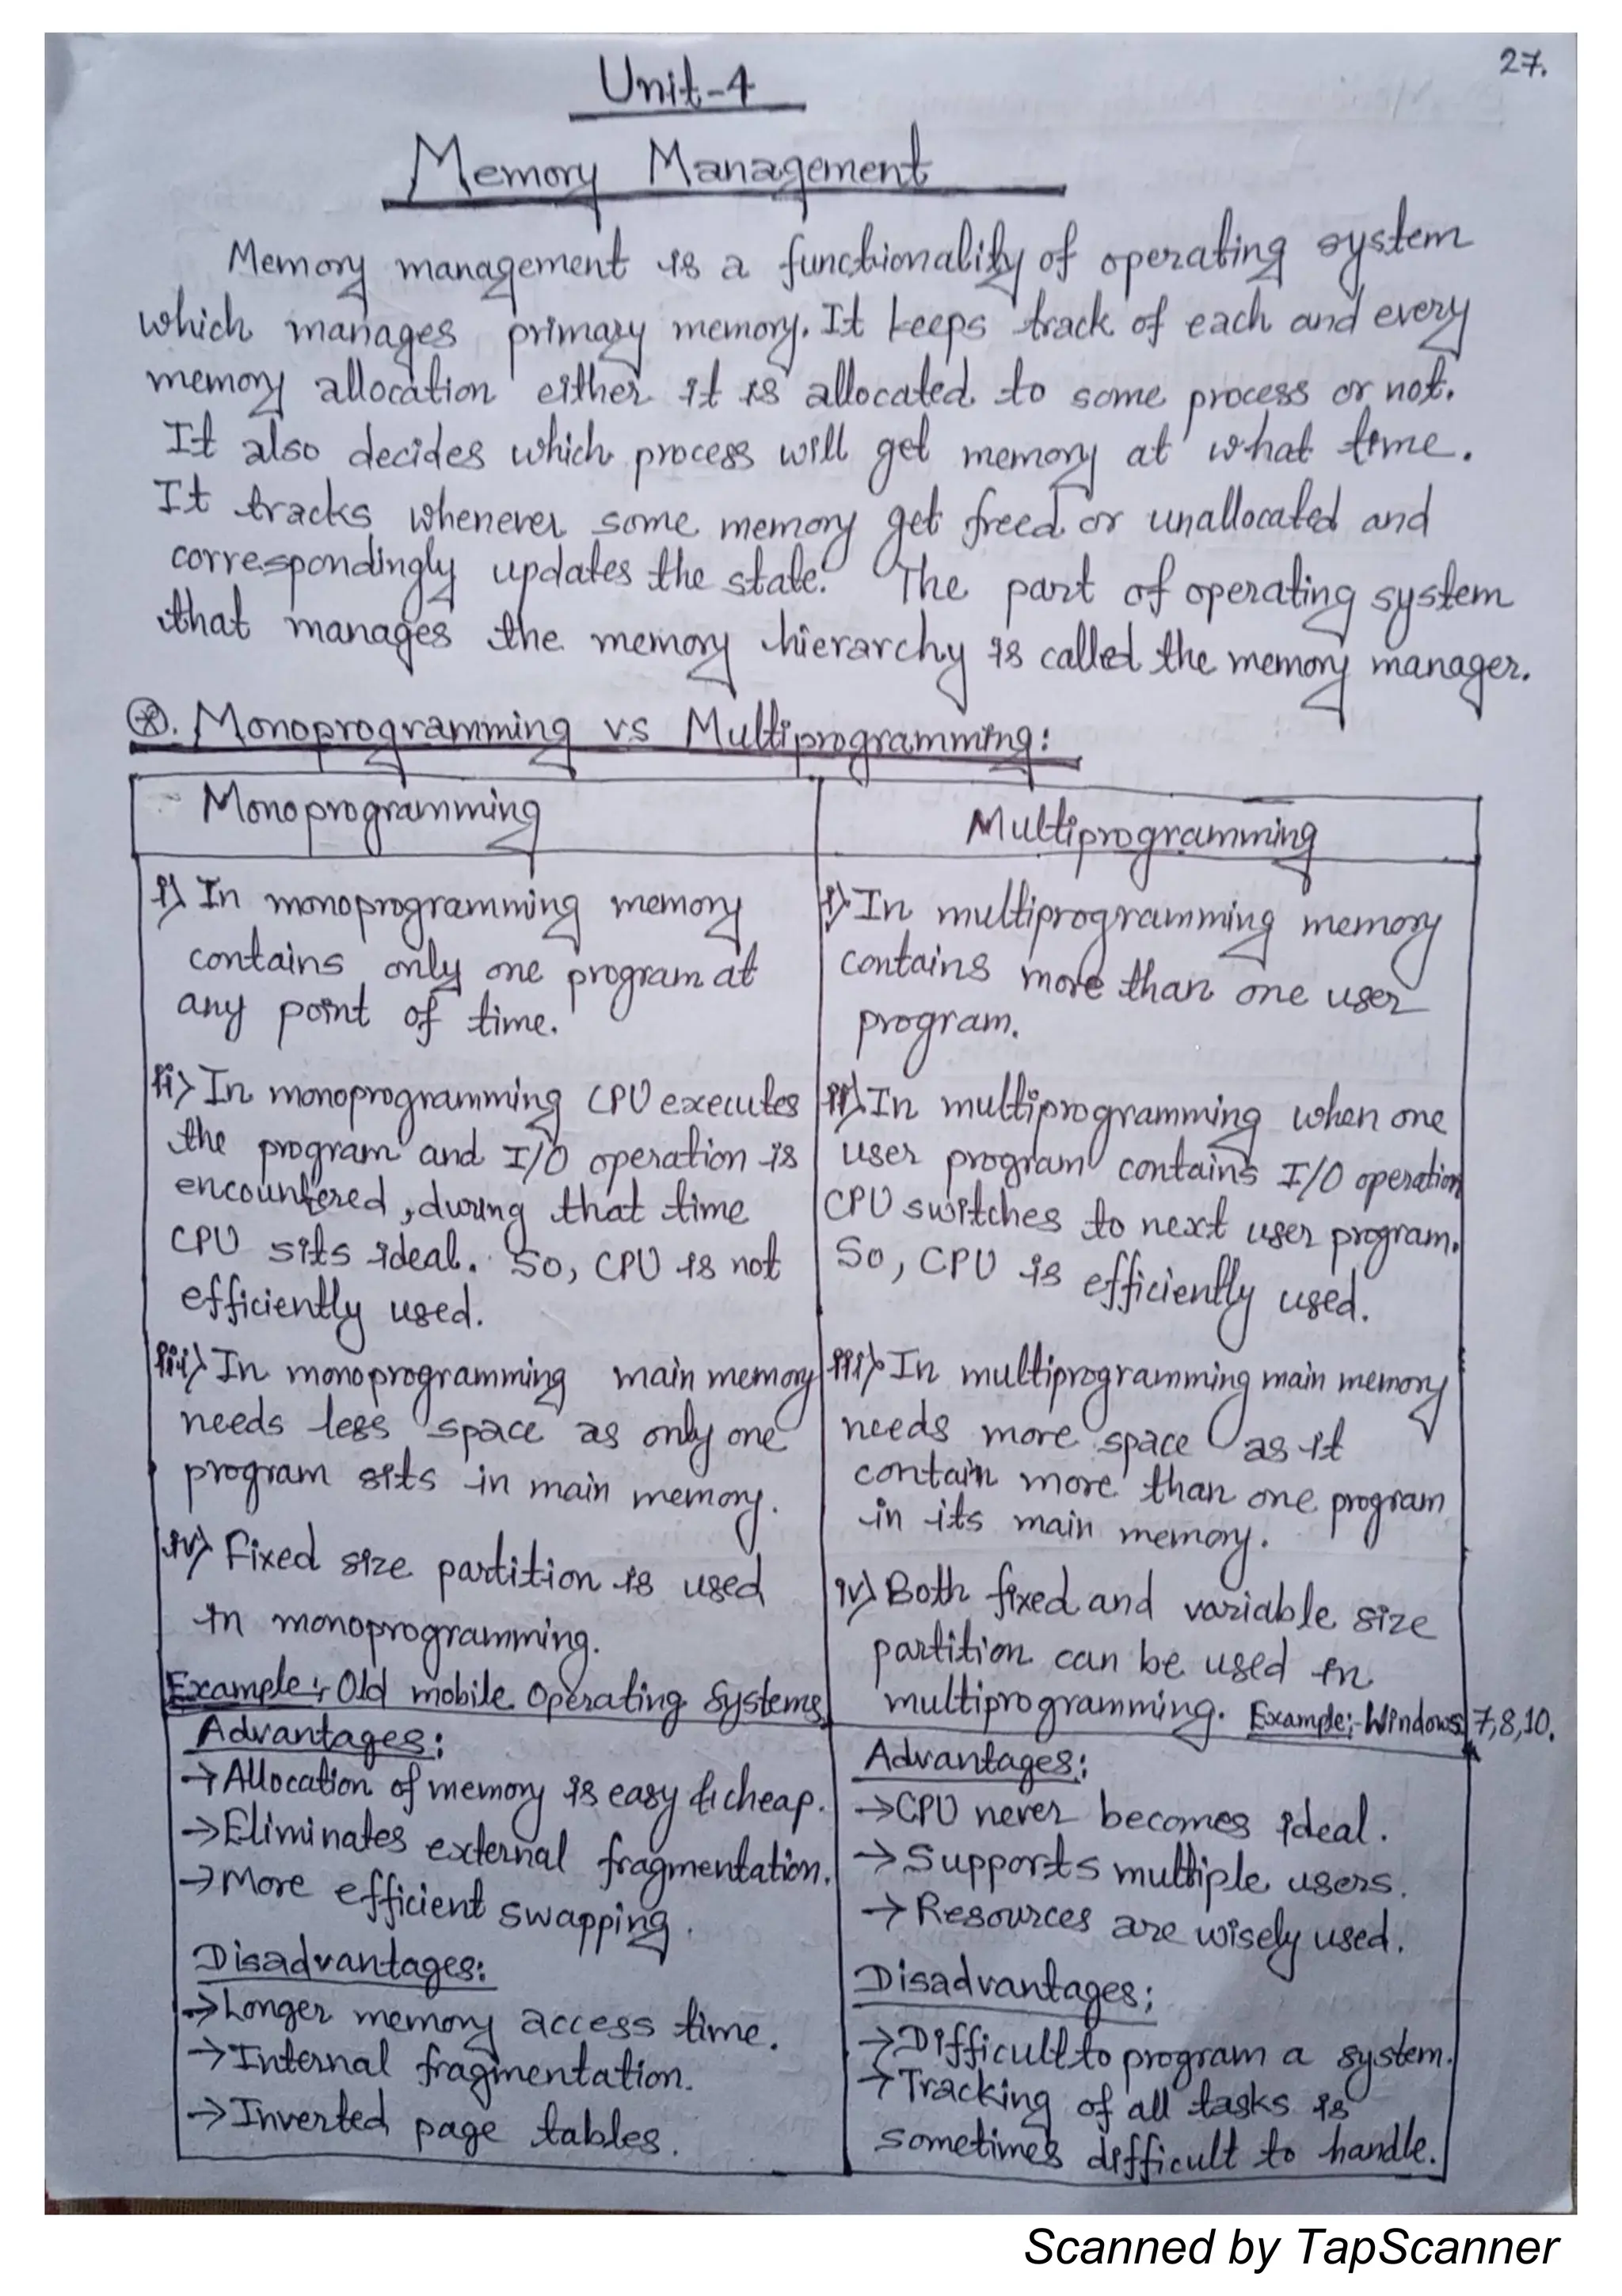 27.
Unit-4
Memory Management
Memory management is a functionality of operating system
which manages primary memory. It keeps track of each and every
memory allocation either it is allocated to some process or not.
It also decides which process will get memory at what time.
It tracks whenever some memory get freed or unallocated and
correspondingly updates the state. The part of operating system
that manages the memory hierarchy is called the memory manager.
⊛. Monoprogramming vs Multiprogramming:
Monoprogramming
i) In monoprogramming memory
contains only one program at
any point of time.
ii) In monoprogramming CPU executes
the program and I/O operation is
encountered, during that time
CPU sits ideal. So, CPU is not
efficiently used.
iii) In monoprogramming main memory
needs less space as only one
program sits in main memory.
iv) Fixed size partition is used
in monoprogramming.
Example:- Old mobile Operating Systems
Advantages:
→ Allocation of memory is easy & cheap.
→ Eliminates external fragmentation.
→ More efficient swapping.
Disadvantages:
→ Longer memory access time.
→ Internal fragmentation.
→ Inverted page tables.
Multiprogramming
i) In multiprogramming memory
contains more than one user
program.
ii) In multiprogramming when one
user program contains I/O operation
CPU switches to next user program.
So, CPU is efficiently used.
iii) In multiprogramming main memory
needs more space as it
contain more than one program
in its main memory.
iv) Both fixed and variable size
partition can be used in
multiprogramming. Example:- Windows 7,8,10.
Advantages:
→ CPU never becomes ideal.
→ Supports multiple users.
→ Resources are wisely used.
Disadvantages:
→ Difficult to program a system.
→ Tracking of all tasks is
sometimes difficult to handle.
Scanned by TapScanner